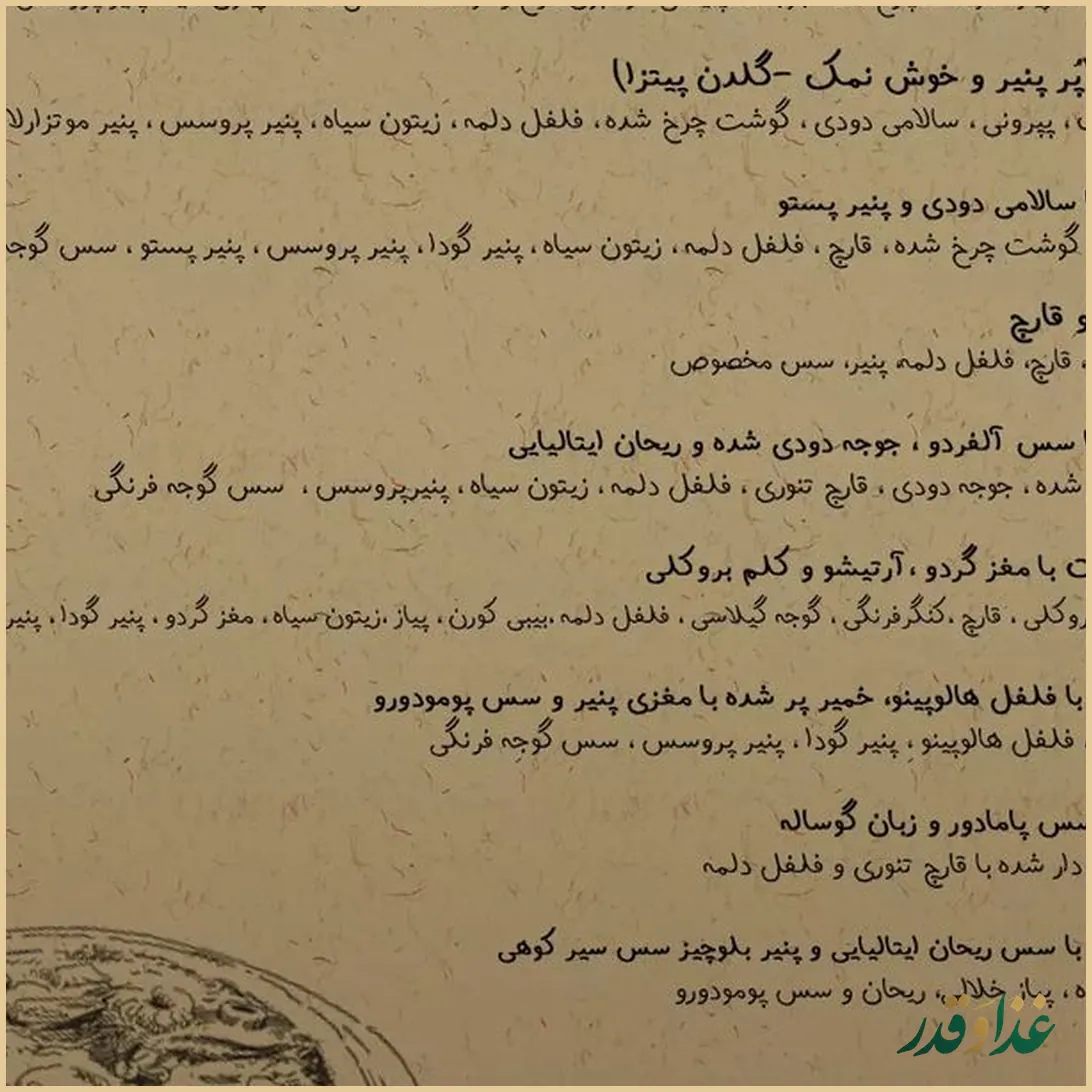 پُر پنیر و خوش نمک -گلدن پیتزا)
، پپرونی ، سالامی دودی ، گوشت چرخ شده، فلفل دلمه، زیتون سیاه، پنیر پروسس، پنیر موتزارلا
سالامی دودی و پنیر پستو
گوشت چرخ شده، قارچ ، فلفل دلمه، زیتون سیاه، پنیر گودا، پنیر پروسس، پنیر پستو ، سس گوجه
و قارچ
، قارچ، فلفل دلمه، پنیر، سس مخصوص
سس آلفردو ، جوجه دودی شده و ریحان ایتالیایی
شده ، جوجه دودی ، قارچ تنوری ، فلفل دلمه، زیتون سیاه، پنیرپروسس، سس گوجه فرنگی
با مغز گردو ،آرتیشو و کلم بروکلی
روکلی ، قارچ ،کنگرفرنگی ، گوجه گیلاسی ، فلفل دلمه ،بیبی کورن، پیاز ،زیتون سیاه، مغز گردو ، پنیر گودا، پنیر
با فلفل هالوپینو، خمیر پر شده با مغزی پنیر و سس پومودورو
، فلفل هالوپینو ، پنیر گودا، پنیر پروسس ، سس گوجه فرنگی
سس پامادور و زبان گوساله
دار شده با قارچ تنوری و فلفل دلمه
با سس ریحان ایتالیایی و پنیر بلوچیز سس سیر کوهی
ه ، پیاز خلالی، ریحان و سس پومودورو
غذا و قدر